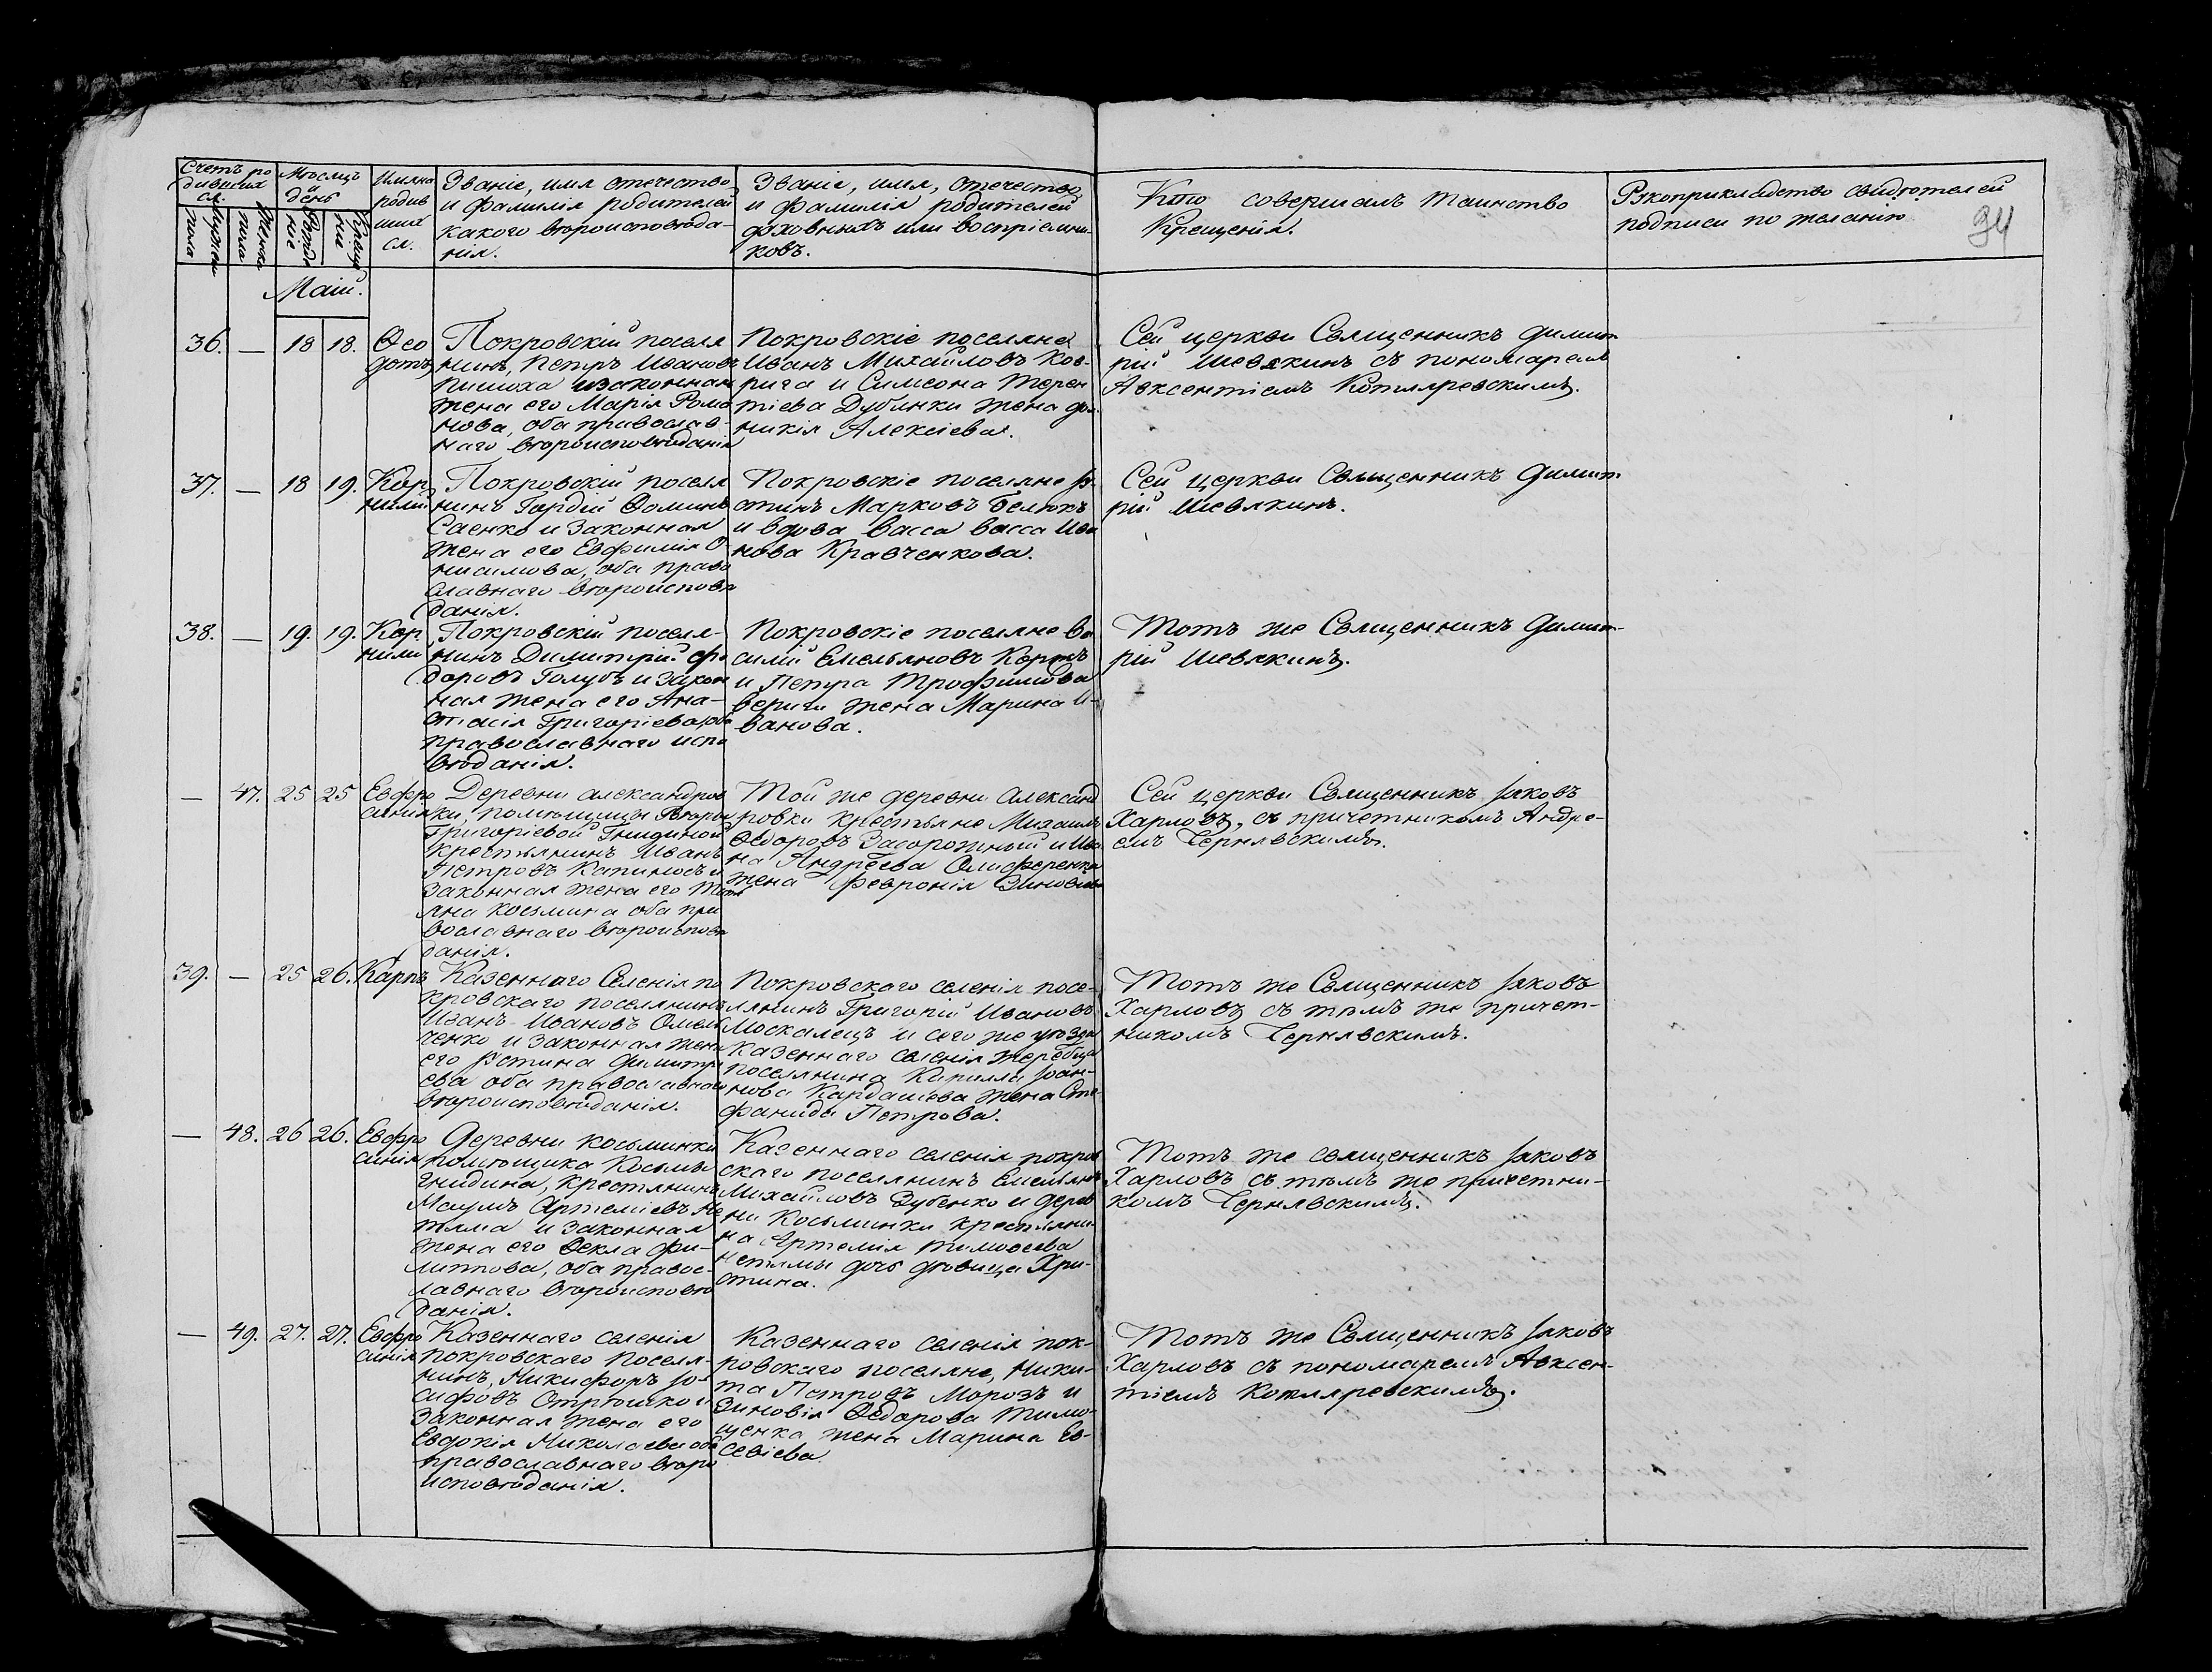 Счетъ ро
дивших
ся.
Мужеск
пола
Женска
пола
Мѣсяцъ
и
день
Рожде
ніе
Креще
ніе
Имяна
родив
ших
ся.
Званіе, имя отечество
и фамилія родителей
какого вѣроисповѣда-
нія.
Званіе, имя, отечество
и фамилія родителей
духовныхъ или воспріемни-
ковъ.
Кто совершалъ таинство
Крещенія.
Рукоприкладство свидѣтелей
подписи по желанію
94
Маій.
36. — 18 18. Ѳео
дотъ
Покровскій поселя
нинъ, Петръ Ивановъ
законная
жена его Марія Рома
нова, оба православ-
наго вѣроисповѣданія
Покровскіе поселяне
Иванъ Михайловъ Ков-
рига и Симеона Терен
тіева Дубянки жена дом
никія Алексіева.
Сей церкви Священникъ Димит
рій Шевякинъ съ пономарем
Авксентіемъ Котляревскимъ.
37. — 18 19. Кор
нилій
Покровскій поселя
нинъ Гордій Ѳоминъ
Саенко и законная
жена его Евфимія О-
нисимова, оба право
славнаго вѣроисповѣ
данія.
Покровскіе поселяне Іу-
стинъ Марковъ Белюкъ
и вдова Васса Васса Ива
нова Кравченкова.
Сей церкви Священникъ Димит
рій Шевякинъ.
38. — 19. 19. Кор
нили
Покровскій поселя-
нинъ Димитрій Фе
доровъ Голубъ и закон
ная жена его Ана-
стасія Григоріева, оба
православнаго испо
вѣданія.
Покровскіе поселяне Ва
силій Емельяновъ Коржъ
и Петра Трофимова
Вериги жена Марина И-
ванова.
Тотъ же Священникъ Димит-
рій Шевякинъ.
— 47. 25 25 Евфро
синія
Деревни Александров
ки, помѣщицы
Григоріевой Гнидиной
крестьянинъ Иванъ
Петровъ Капиносъ и
законная жена его Тат
яна Косьмина оба пра
вославнаго вѣроисповѣ
данія.
Той же деревни Александ
ровки крестьяне Михаилъ
Ѳедоровъ Загорожный и Ива
на Андреева Олиференка
жена Февронія Зиновіева
Сей церкви Священникъ Іаковъ
Харловъ, съ причетникомъ Андре-
емъ Чернявскимъ.
39. — 25 26. Карпъ
Казеннаго Селенія по
кровскаго поселянинъ
Иванъ Ивановъ Омель
ченко и законная жена
его Іустина Димитрі
ева оба православнаго
вѣроисповѣданія.
Покровскаго селенія посе-
лянинъ Григорій Ивановъ
Москалецъ и сего же уѣзда
Казеннаго селенія Жеребца
поселянина Кирилла Іоан-
нова Кардашева жена Сте
фанида Петрова.
Тотъ же Священникъ Іаковъ
Харловъ съ тѣмъ же причет-
никомъ Чернявскимъ.
— 48. 26 26. Евфро
синія
Деревни Косьминки
помѣщика Косьмы
Гнидина, крестянинъ
Наумъ Артеміевъ Не
тяма и законная
жена его Ѳекла Фи-
липпова, оба правос-
лавнаго вѣроисповѣ
данія.
Казеннаго селенія покров
скаго поселянинъ Емельянъ
Михайловъ Зубенко и дерев
ни Косьминки крестьяни
на Артемія Тимоѳеева
Нетямы дочь дѣвица Хри-
стина.
Тотъ же священникъ Іаковъ
Харловъ съ тѣмъ же причетни-
комъ Чернявскимъ.
— 49. 27. 27. Евфро
синія
Казеннаго селенія
покровскаго Поселя-
нинъ, Никифоръ Іо-
сифовъ Стрюшко и
законная жена его
Евдокія Николаева оба
православнаго вѣро
исповѣданія.
Казеннаго селенія пок-
ровскаго поселяне, Ники-
та Петровъ Морозъ и
Зиновія Ѳедорова Тимо-
щенка жена Марина Ев-
севіева
Тотъ же Священникъ Іаковъ
Харловъ съ пономаремъ Авксен-
тіемъ Котляревскимъ.